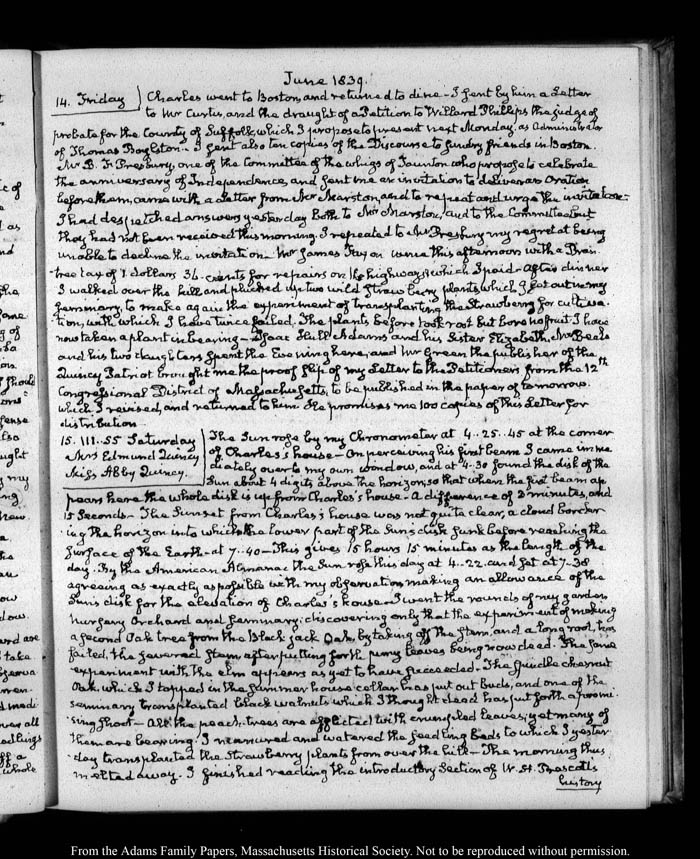 June 1839.
14. Friday
Charles went to Boston, and returned to dine - I sent by him a Letter
to Mr Curtis, and the draught of a Petition to Willard Phillips the judge of
probate for the County of Suffolk, which I propose to present next Monday, as Administrator
of Thomas Boylston - I sent also ten copies of the Discourse to sundry friends in Boston.
Mr B. F. Presbury, one of the Committee of the whigs of Taunton who propose to celebrate
the anniversary of Independence, and sent me an invitation to deliver an Oration
before them, came with a Letter from Mr Marston, and to repeat and urge the invitation -
I had despatched answers yesterday both to Mr Marston, and to the Committee but
they had not been received this morning. I repeated to Mr Presbury my regret at being
unable to decline the invitation. Mr James came this afternoon with a
tax of 7 dollars 36 cents for repairs on the highway; which I paid - After dinner
I walked over the hill and plucked up two wild Strawberry plants which I set out in my
seminary, to make again the experiment of transplanting the Strawberry for cultiva-
tion, with which I have twice failed. The plants before took root but bore no fruit I have
now taken a plant in bearing - Isaac Hull Adams and his Sister Elizabeth, Mr Beale
and his two daughters spent the Evening here; and Mr Green the publisher of the
Quincy Patriot brought me the proof slip of my Letter to the Petitioners from the 12th
Congressional District of Massachusetts, to be published in the paper of tomorrow.
which I revised, and returned to him. He promises me 100 copies of this Letter for
distribution
15. III. 55 Saturday
Mrs Edmund Quincy
Miss Abby Quincy.
The Sun rose by my Chronometer at 4..25..45 at the corner
of Charles's house - On perceiving his first beam I came imme-
diately over to my own window, and at 4-30 found the disk of the
Sun about 4 digits above the horizon, so that where the first beam ap-
pears here the whole disk is up from Charles's house - A difference of 3 minutes, and
15 Seconds - The Sunset from Charles's house was not quite clear, a cloud border-
ing the horizon into which the lower part of the Sun's disk sunk before reaching the
surface of the Earth - at 7-40 - This gives 15 hours 15 minutes as the length of the
day. By the American Almanac the Sun rose this day at 4-22. and set at 7-38
agreeing as exactly as possible with my observation making an allowance of the
Sun's disk for the elevation of Charles's house - I went the rounds of my garden
Nursery Orchard and Seminary; discovering only that the experiment of making
a second Oak tree from the Black jack Oak, by taking off the Stem, and a long root, has
failed, the severed Stem after putting forth many leaves being now dead. The same
experiment with the elm appears as yet to have succeeded - The Spindle chesnut
Oak, which I topped in the summer house cellar has put out buds, and one of the
seminary transplanted black walnuts which I thought dead has put forth a promi-
sing shoot - All the peach-trees are afflicted with crumpled leaves; yet many of
them are bearing. I manured and watered the seedling beds to which I yester-
day transplanted the Strawberry plants from over the hill - The morning thus
melted away. I finished reading the introductory Section of W. H. Prescott's
history
From the Adams Family Papers, Massachusetts Historical Society. Not to be reproduced without permission.